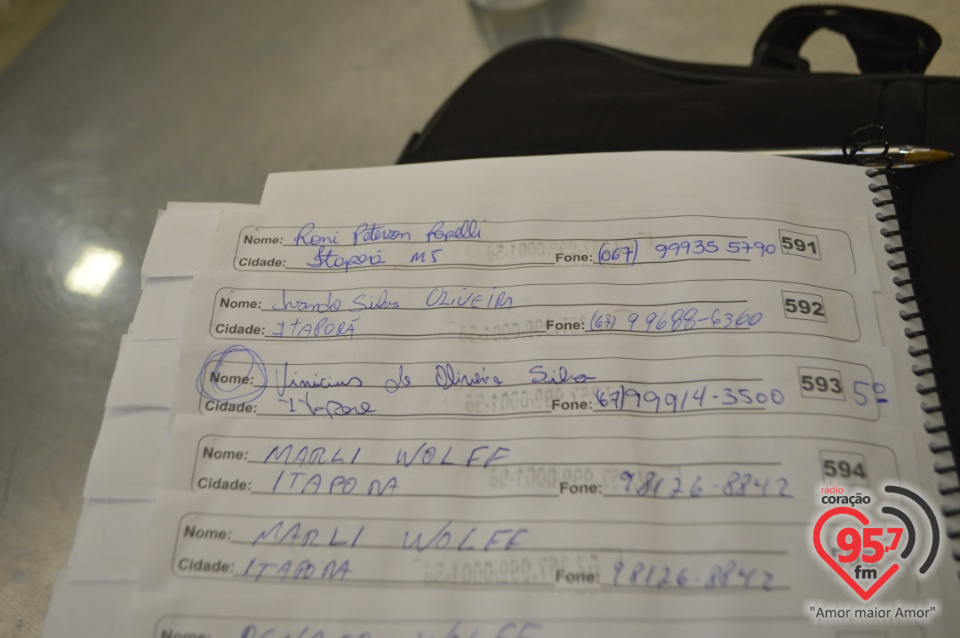 Nome: Roni Peterson Popelli
Cidade: Itaporã MS Fone: (067) 99935 5790 591
Nome: Ivando Silva OLIVEIRA
Cidade: ITAPORÃ Fone: (67) 99688-6360 592
Nome: Vinicius de Oliveira Silva
Cidade: Itapora Fone: 67)99914-3500 593 5º
Nome: MARLI WOLFF
Cidade: ITAPORA Fone: 98126-8842 594
Nome: MARLI WOLFF
Cidade: ITAPORA Fone: 98126-8842
Nome: WOLFF
rádio
coração
95.7
fm
"Amor maior Amor"